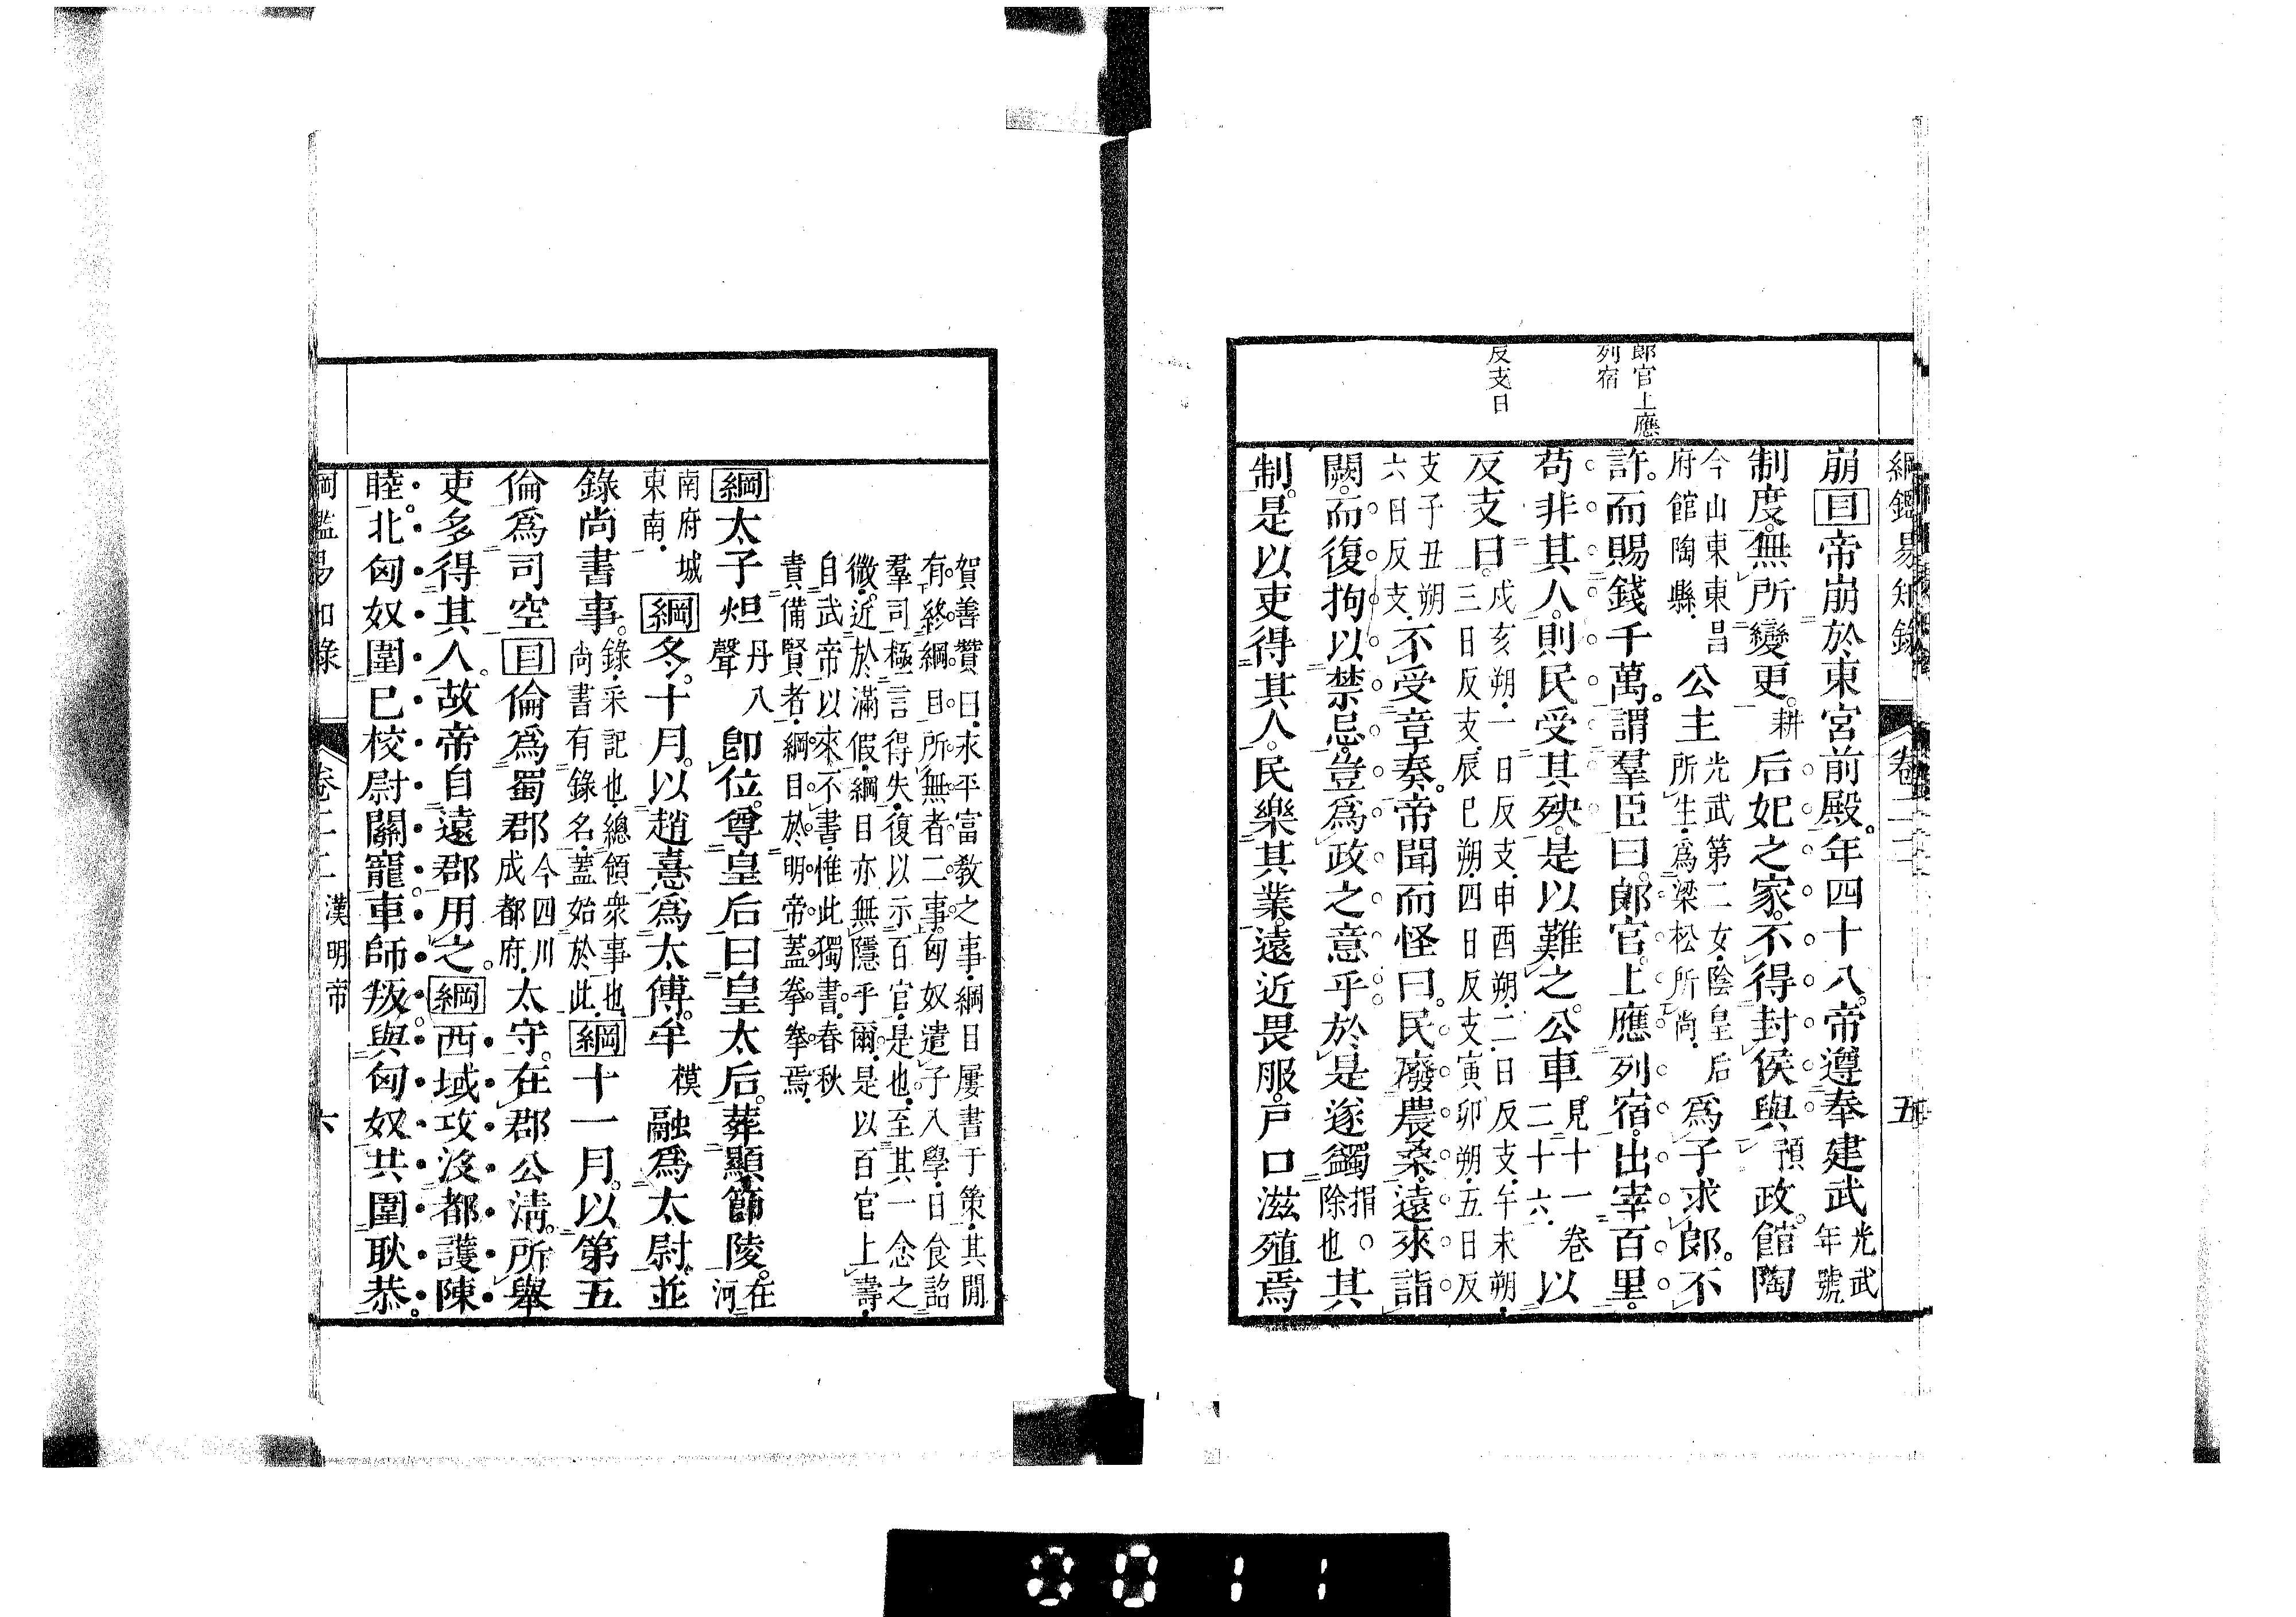 綱鑑易知錄 卷二十二 五
郎官上應
列宿
反支日
崩目帝崩於東宮前殿。年四十八。帝遵奉建武光武年號
制度。無所變更。耕后妃之家。不得封侯與預政。館陶
今山東東昌府館陶縣。公主光武第二女。陰皇后所生。爲梁松所尚。爲子求郎。不
許。而賜錢千萬。謂羣臣曰。郎官上應列宿。出宰百里。
苟非其人。則民受其殃。是以難之。公車見十一卷二十六。以
反支日。戌亥朔。一日反支。申酉朔。二日反支。午未朔。三日反支。辰巳朔。四日反支。寅卯朔。五日反
支。子丑朔六日反支。不受章奏。帝聞而怪曰。民廢農桑。遠來詣
闕。而復拘以禁忌。豈爲政之意乎。於是遂蠲捐。除也。其
制。是以吏得其人。民樂其業。遠近畏服。戶口滋殖焉
賀善贊曰。永平富教之事。綱目屢書于策。其閒
有終綱目所無者二事。匈奴遣子入學。日食詔
羣司極言得失。復以示百官。是也。至其一念之
微。近於滿假。綱目亦無隱乎爾。是以百官上壽。
自武帝以來不書。惟此獨書。春秋
責備賢者。綱目於明帝蓋拳拳焉。
綱太子炟丹入聲卽位。尊皇后曰皇太后。葬顯節陵。在河
南府城東南。綱冬。十月。以趙憙爲太傅。牟模融爲太尉。並
錄尚書事。錄。采記也。總領衆事也。尚書有錄名。蓋始於此。綱十一月。以第五
倫爲司空目倫爲蜀郡今四川成都府。太守。在郡公淸。所舉
吏多得其人。故帝自遠郡用之。綱西域攻沒都護陳
睦。北匈奴圍巳校尉關寵。車師叛。與匈奴共圍耿恭。
綱鑑易知錄 卷二十二 漢明帝 六
0011